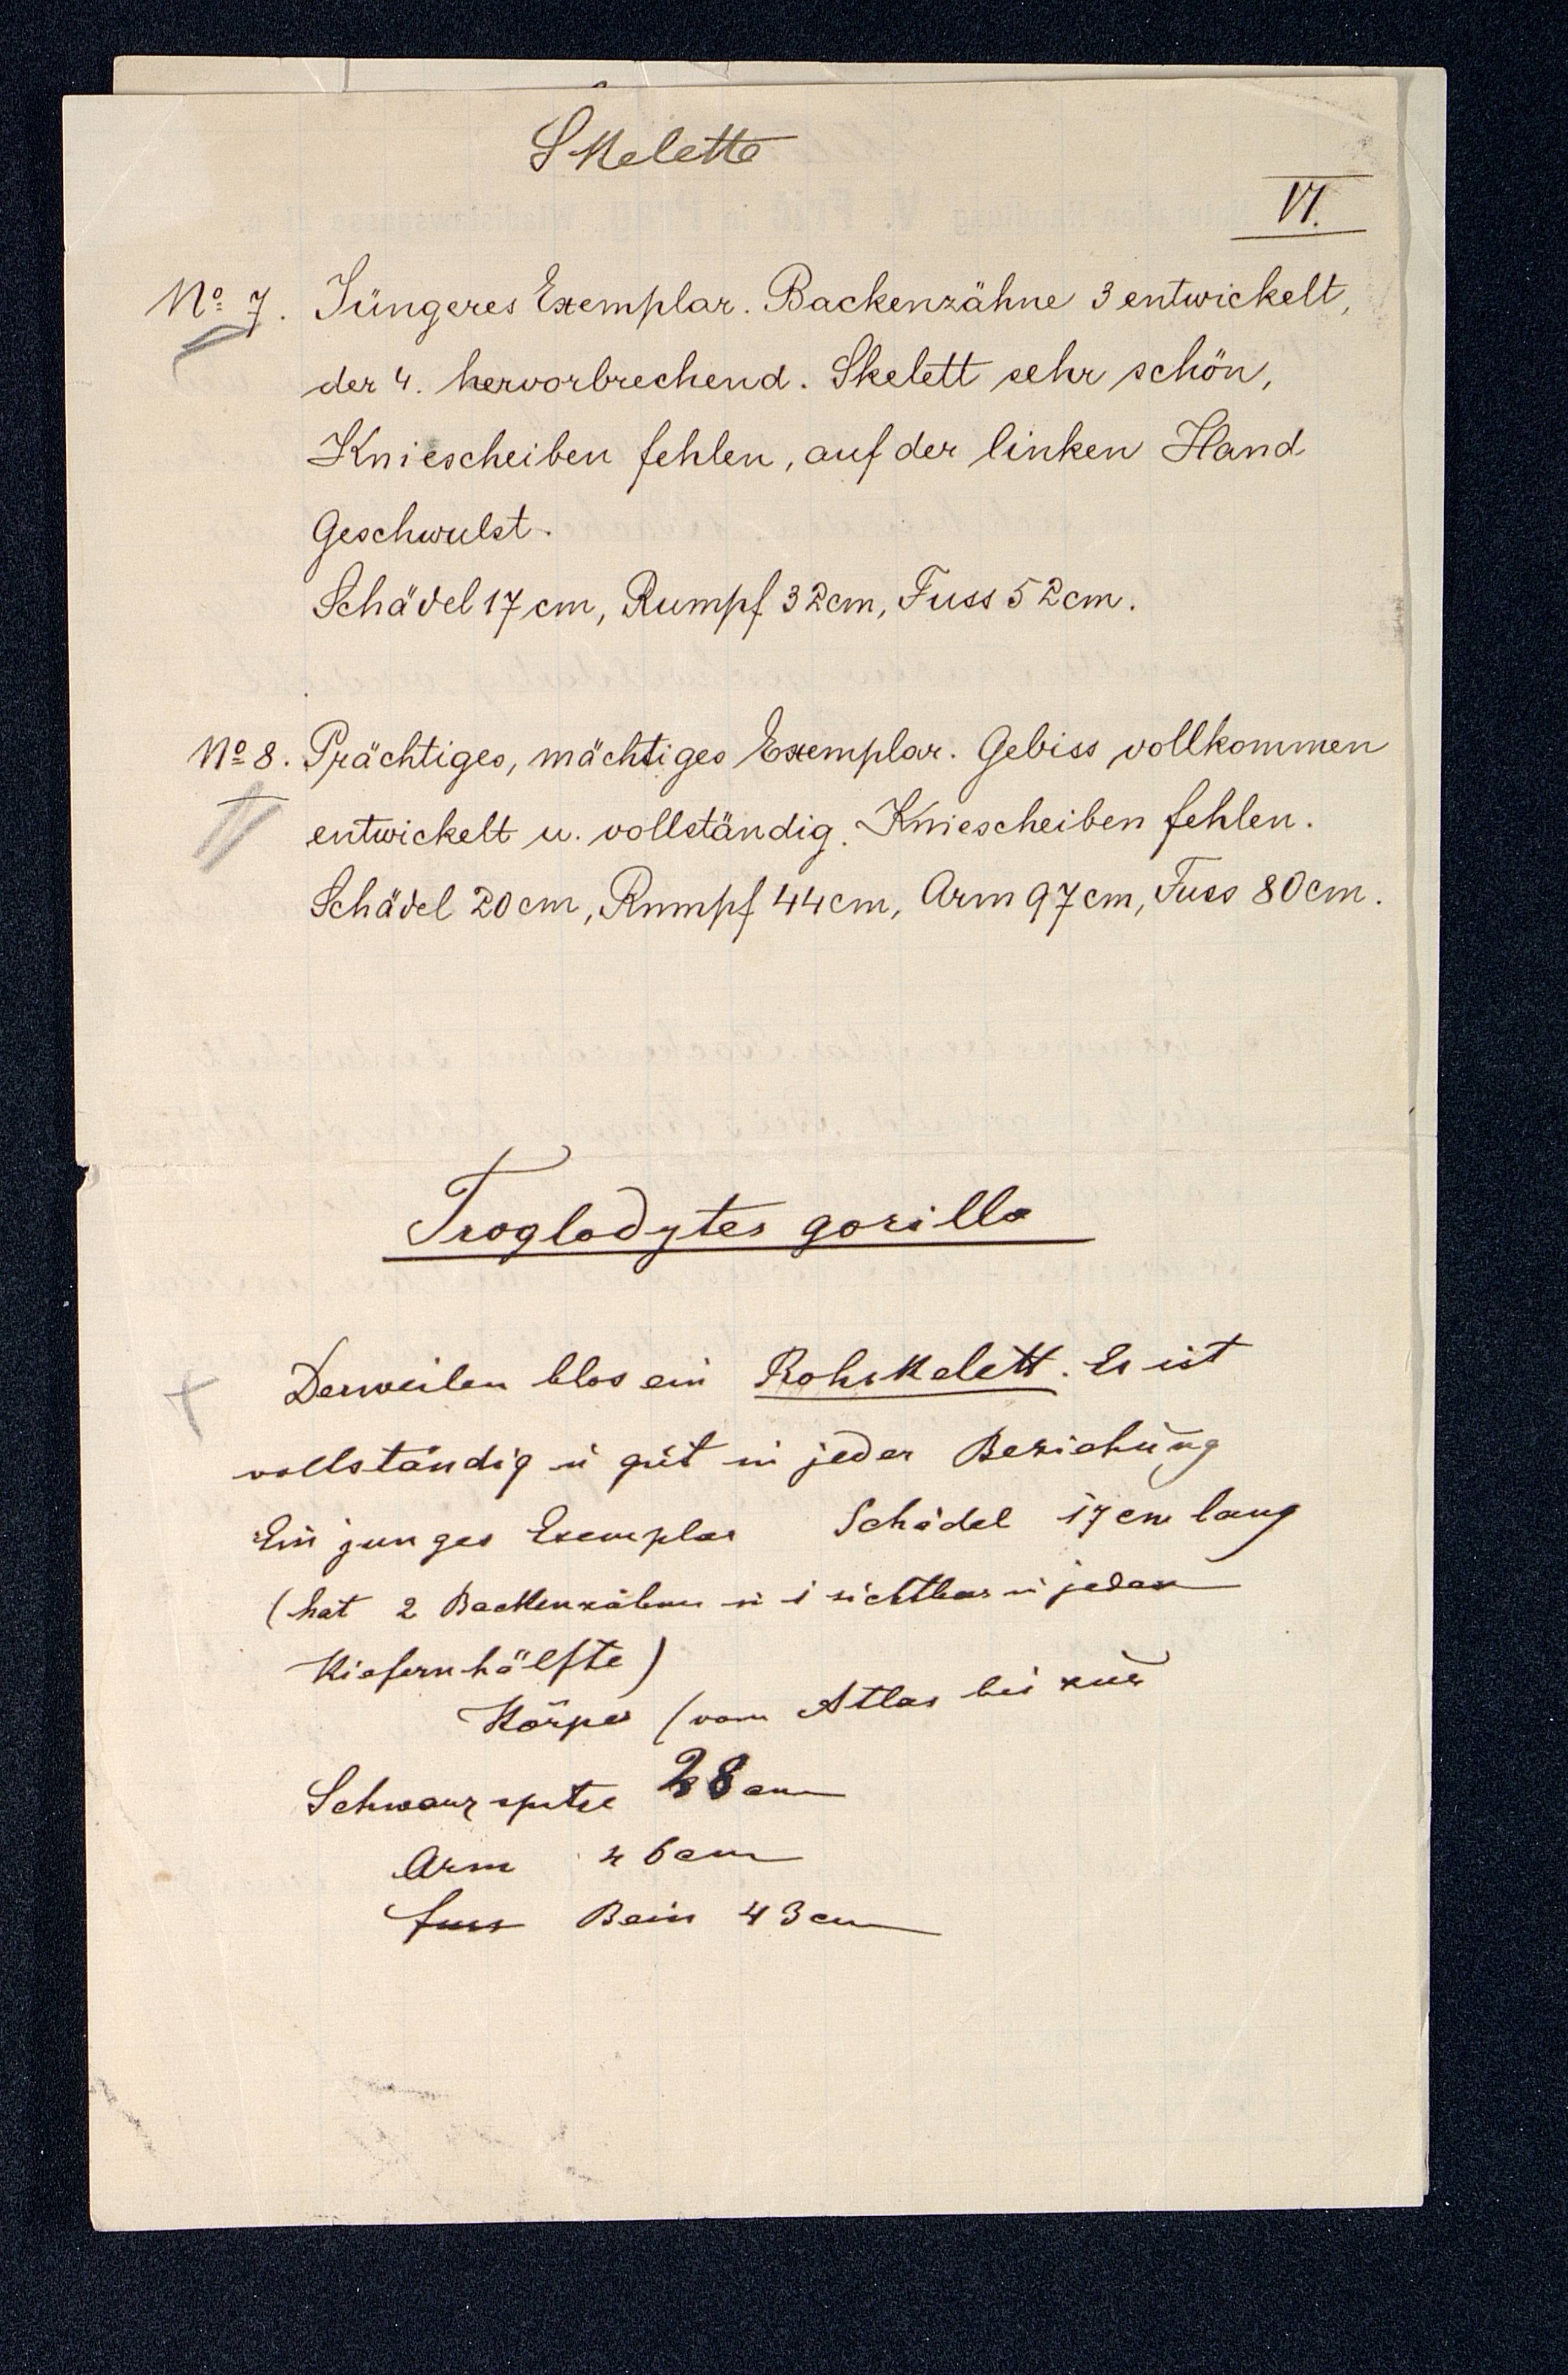 Skelette
VI.
No 7. Jüngeres Exemplar. Backenzähne 3 entwickelt,
der 4. hervorbrechend. Skelett sehr schön,
Kniescheiben fehlen, auf der linken Hand
Geschwulst.
Schädel 17 cm, Rumpf 32 cm, Fuss 52 cm.
No 8. Prächtiges, mächtiges Exemplar. Gebiss vollkommen
entwickelt u. vollständig. Kniescheiben fehlen.
Schädel 20 cm, Rumpf 44 cm, Arm 97 cm, Fuss 80 cm.
Troglodytes gorilla
Derweilen blos ein Rohskelett. Es ist
vollständig u gut in jeder Beziehung
Ein junges Exemplar Schädel 17 cm lang
(hat 2 Backenzähne u 1 sichtbar in jeder
Kiefernhälfte)
Körper (vom Atlas bis zur
Schwanzspitze 28 cm
Arm 46 cm
fuss Bein 43 cm